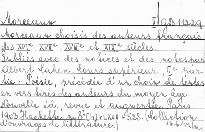 Morceaux
Morceaux choisis des auteurs français
des XVIe XVIIe XVIIIe et XIXe siècles
Publiés avec des notices et des notes par
Albert Cahen
Poésie, précédée d'un choix de textes
en vers tirés des auteurs du moyen âge
Nouvelle éd., revue et augmentée. Paris
1905 Hachette (Collection
d'ouvrages de littérature.)